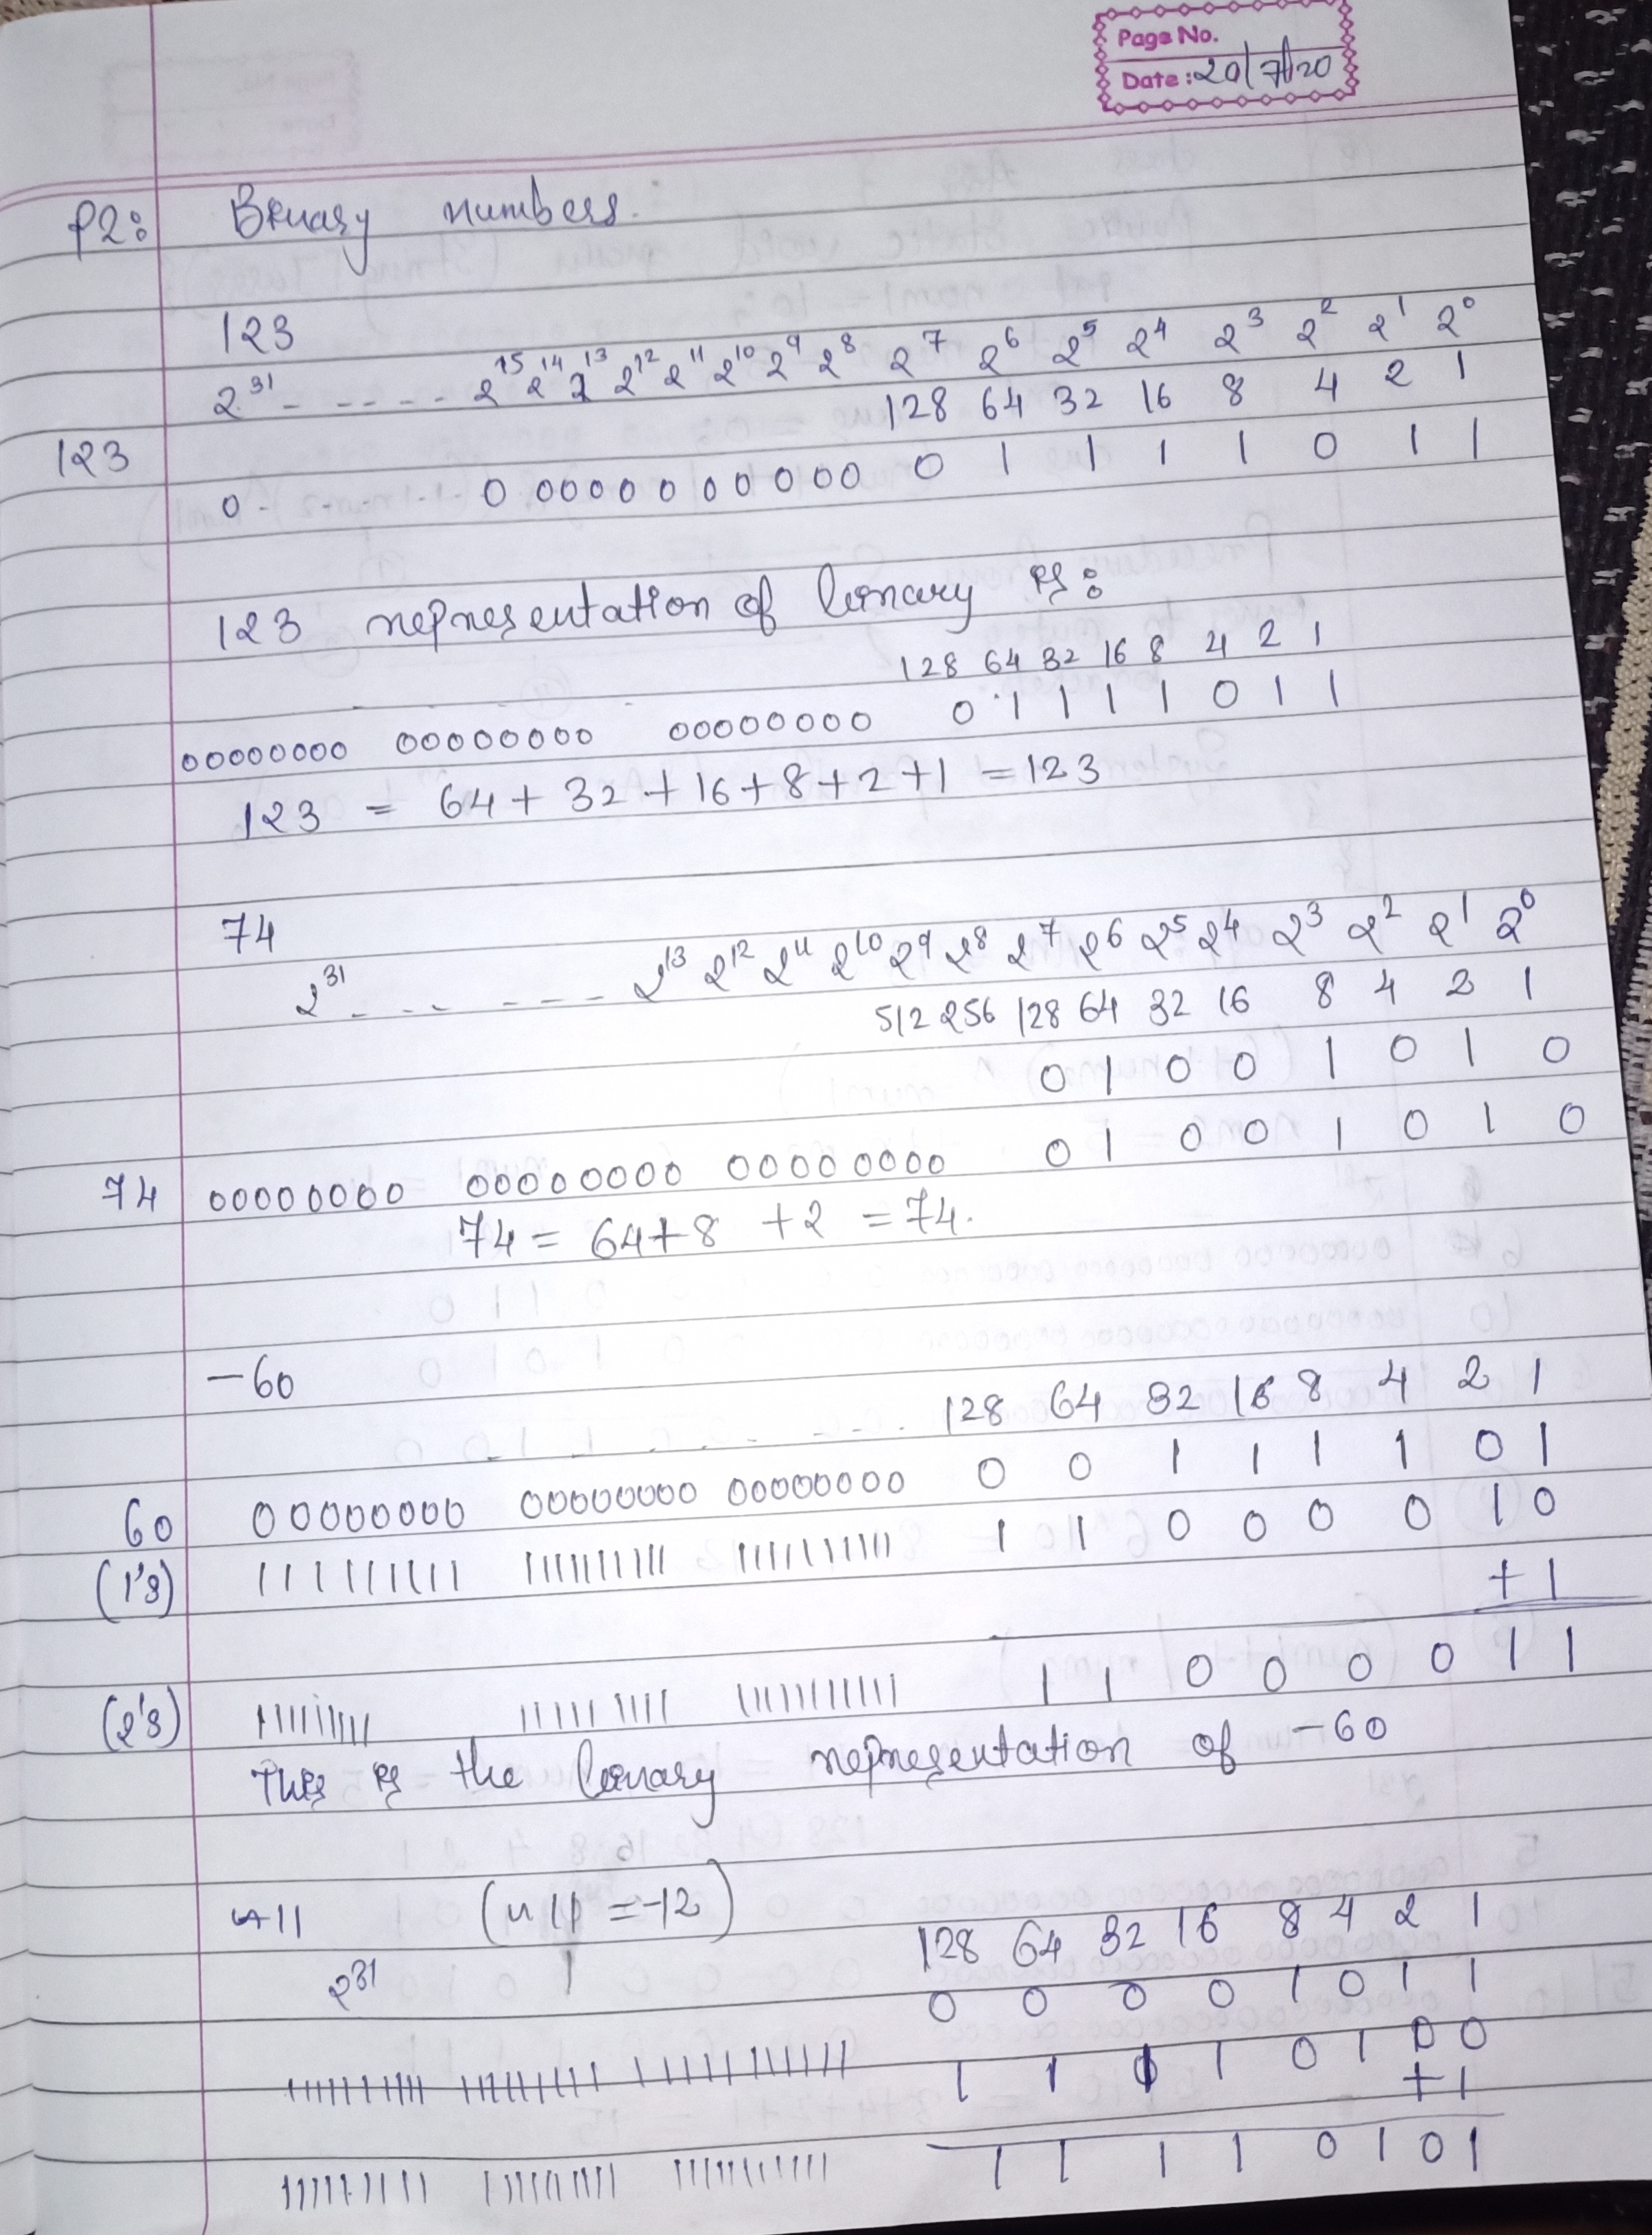 Page No.
Date: 20/7/20
P2: Binary numbers.
123
2^31 - - - - - - 2^15 2^14 2^13 2^12 2^11 2^10 2^9 2^8 2^7 2^6 2^5 2^4 2^3 2^2 2^1 2^0
128 64 32 16 8 4 2 1
123 0 - - - - 0 0000 0 0 0 0 0 0 0 1 1 1 1 0 1 1
123 representation of binary is:
128 64 32 16 8 4 2 1
00000000 00000000 00000000 0 1 1 1 1 0 1 1
123 = 64 + 32 + 16 + 8 + 2 + 1 = 123
74
2^31 - - - - - - 2^13 2^12 2^11 2^10 2^9 2^8 2^7 2^6 2^5 2^4 2^3 2^2 2^1 2^0
512 256 128 64 32 16 8 4 2 1
0 1 0 0 1 0 1 0
74 00000000 00000000 00000000 0 1 0 0 1 0 1 0
74 = 64+8 +2 = 74.
-60
128 64 32 16 8 4 2 1
60 00000000 00000000 00000000 0 0 1 1 1 1 0 1
(1's) 111111111 1111111111 11111111111 1 1 0 0 0 0 1 0
+ 1
(2's) 111111111 111111111 11111111111 1 1 0 0 0 0 1 1
This is the binary representation of -60
~11 (~11 = -12)
128 64 32 16 8 4 2 1
2^31 1 0 0 0 0 1 0 1 1
11111111111 1111111111 111111111111 1 1 1 1 0 1 0 0
+ 1
1111111111 1111111111 11111111111 1 1 1 1 0 1 0 1